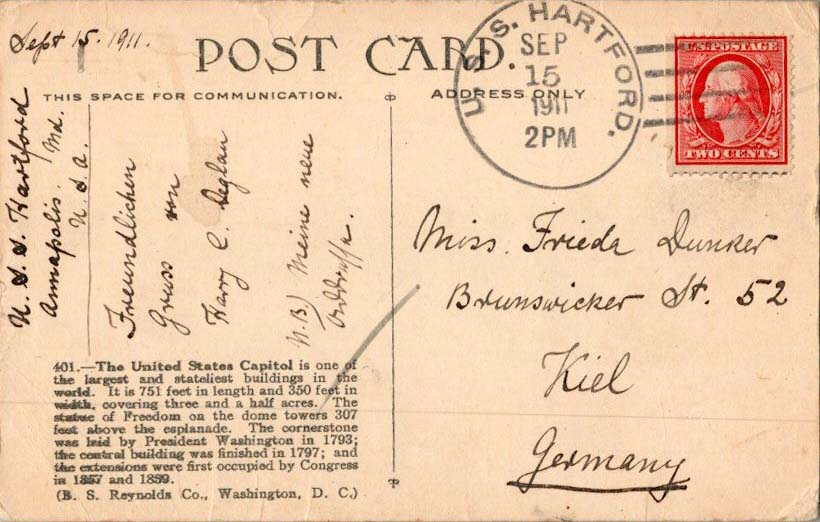 Sept 15. 1911.
POST CARD.
THIS SPACE FOR COMMUNICATION.
ADDRESS ONLY
U. S. S. HARTFORD.
SEP
15
1911
2PM
U.S. POSTAGE
TWO CENTS
U. S. S. Hartford
Annapolis. Md.
U. S. A.
Freundlichen
Gruss von
Harry C.
N.B) Meine neue
Miss. Frieda Dunker
Brunswicker St. 52
Kiel
Germany
401.—The United States Capitol is one of
the largest and stateliest buildings in the
world. It is 751 feet in length and 350 feet in
width, covering three and a half acres. The
statue of Freedom on the dome towers 307
feet above the esplanade. The cornerstone
was laid by President Washington in 1793;
the central building was finished in 1797; and
the extensions were first occupied by Congress
in 1857 and 1859.
(B. S. Reynolds Co., Washington, D. C.)